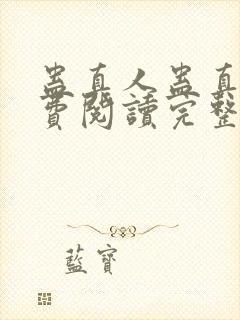 蛊真人蛊真
費閱讀完整
藍寶